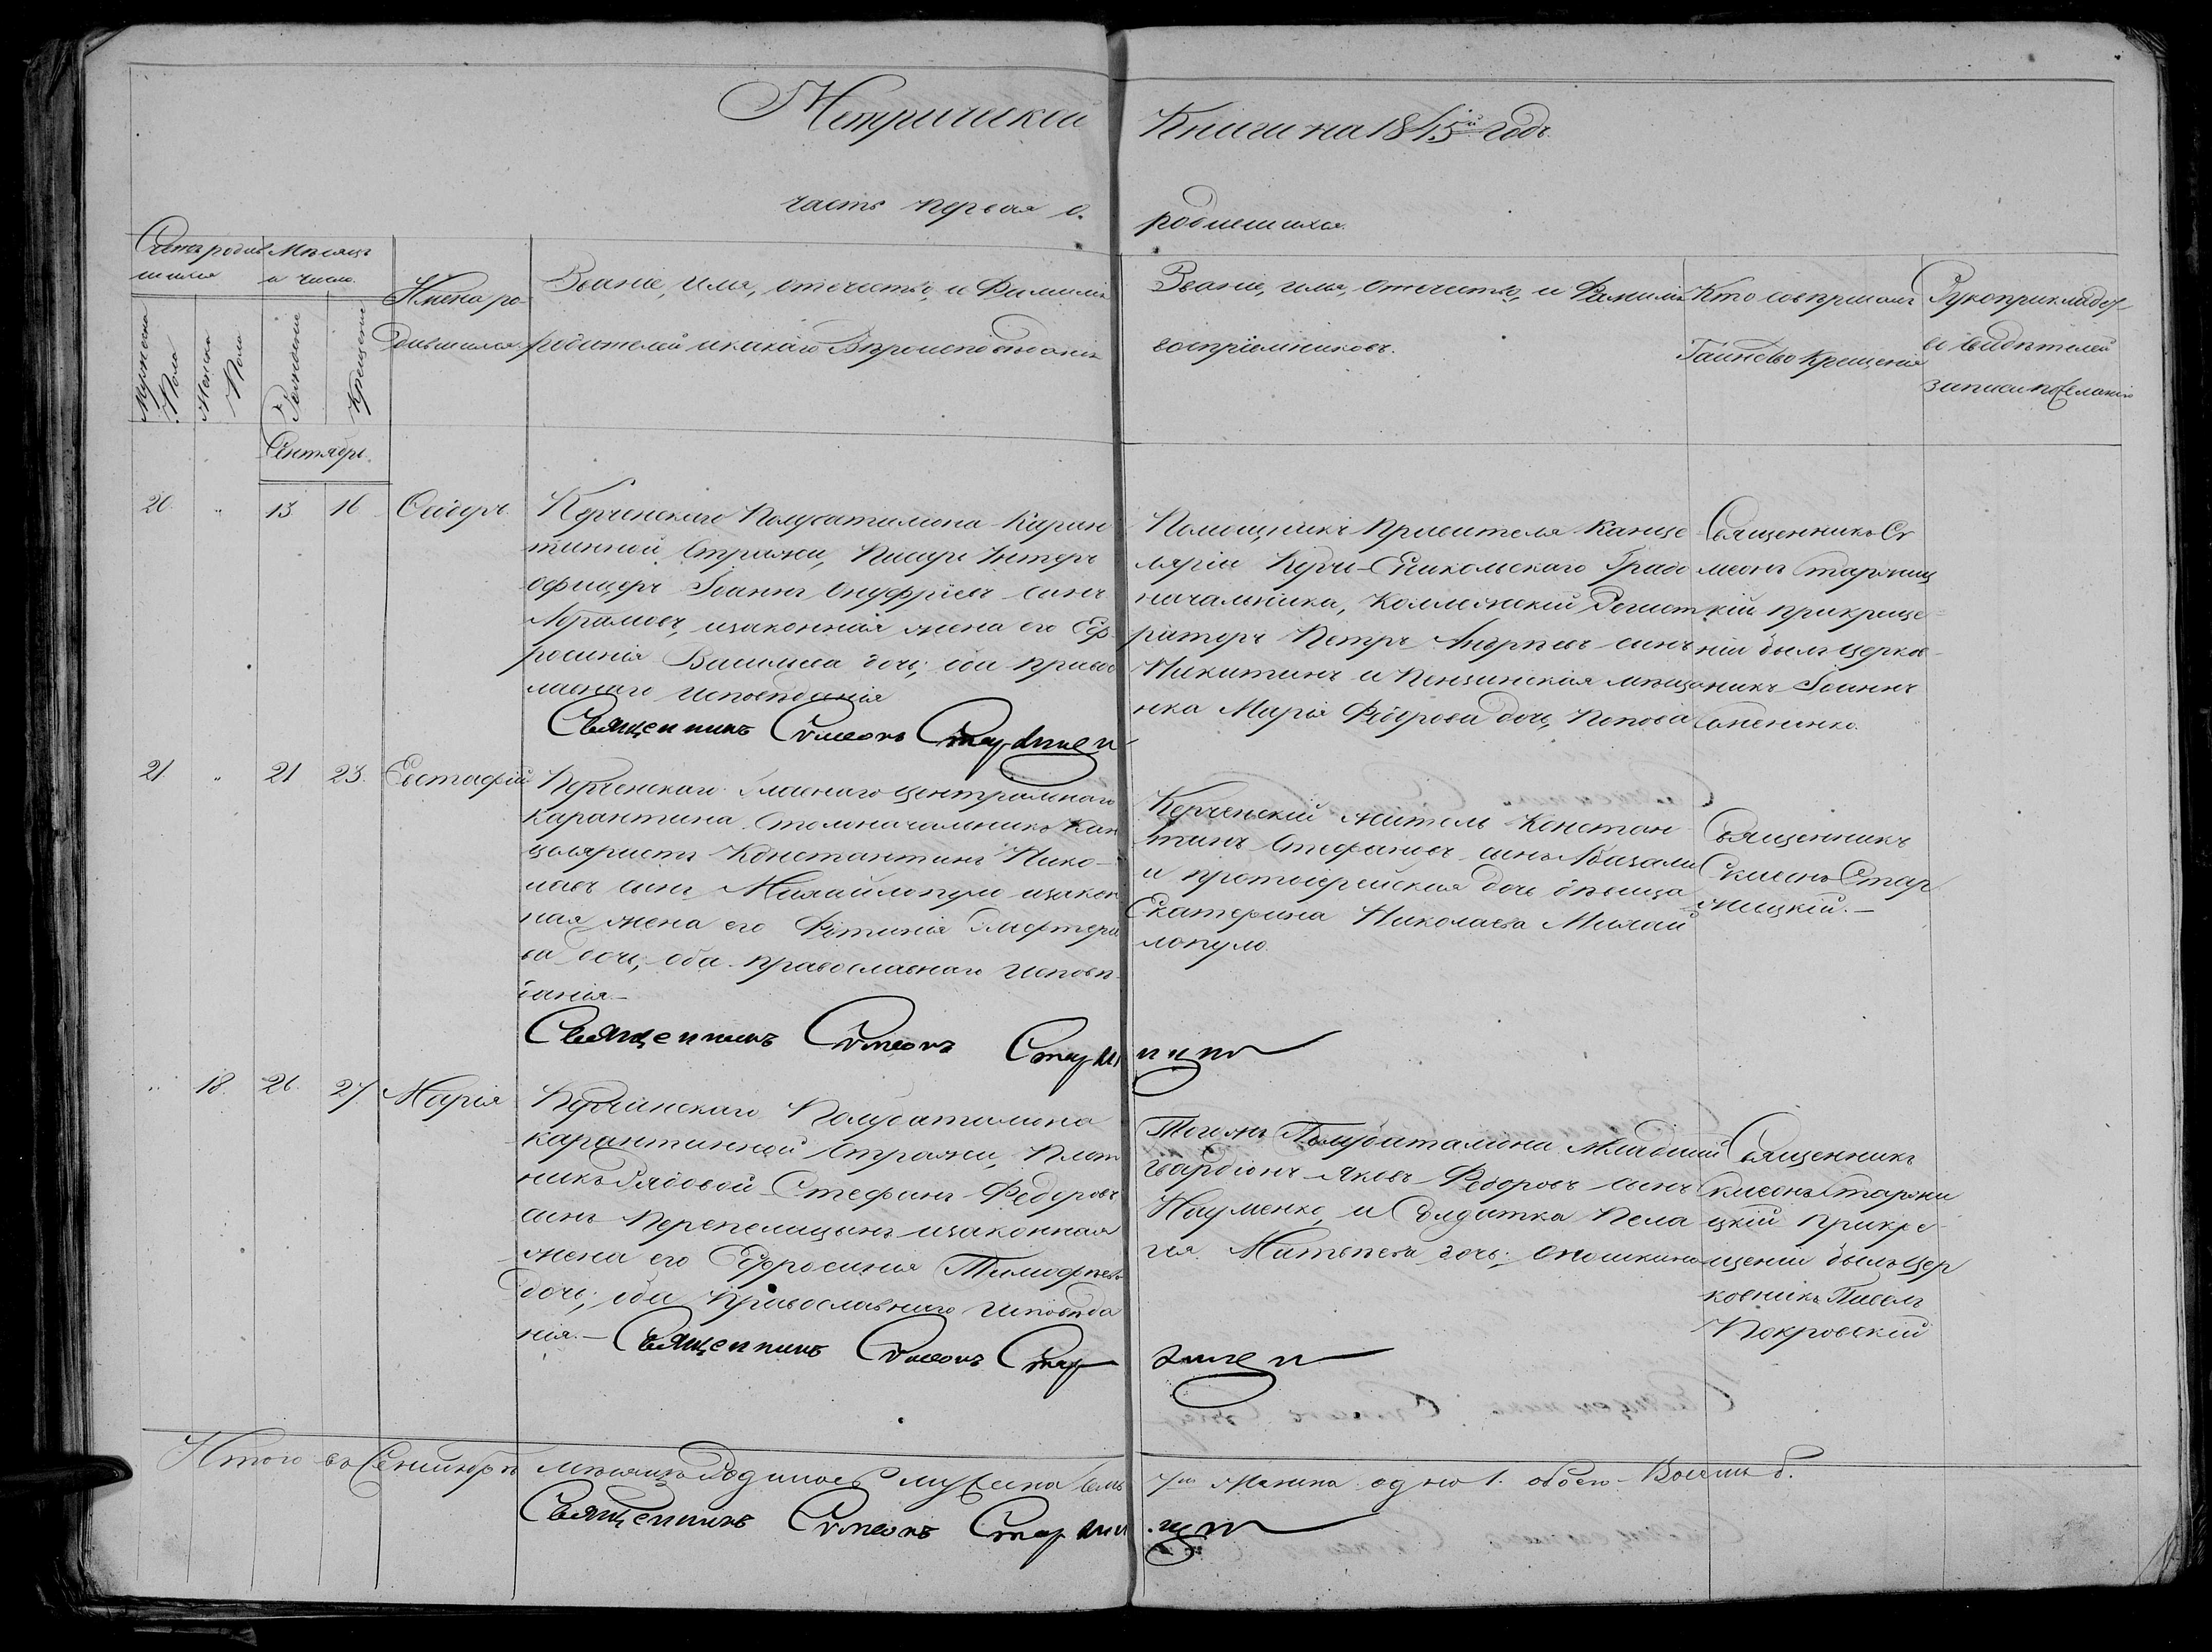 Метрической
Книги на 1845й годъ.
часть первая о
родившихся.
Счетъ родив
шихся
Мѣсяцъ
и число.
Мужеска
Пола
Женска
Пола
Рожденіе
Крещеніе
Имена ро
дившихся.
Званіе, имя, отечество, и Фамилія
родителей и какаго Вѣроисповѣданія
Званіе, имя, отечество, и Фамилія
воспріемниковъ.
Кто совершалъ
Таинство Крещенія
Рукоприклад
записи по желанію
Сентябрь.
20. „ 13 16
Керченскаго Полубаталиона Каран
тинной Стражи, Писарь Унтеръ
офицеръ Іоаннъ Онуфріевъ сынъ
Абрамовъ, изаконная жена его Еф
росинія Василіева дочь; оба право
славнаго исповѣданія
Священникъ Сѵмеонъ
Помощникъ Правителя Канце
ляріи Керчь-Еникольскаго Градо
начальника, Коллежскій Регист
раторъ Петръ Андреевъ сынъ
Никитинъ и Пензинская мѣща
нка Марія Федорова дочь, Попова
Священникъ Сѵ
меонъ Старжиц
кій прикреще=
ніи былъ церков-
никъ Іоаннъ
21 „ 21 23. Евстафій
Керченскаго Главнаго центральнаго
Карантина Столоначальникъ Кан
целяристъ Константинъ Нико-
лаевъ сынъ Михайлопуло изакон
ная жена его Фотинія Элефтері
ва дочь, оба православнаго исповѣ-
данія.—
Священникъ Сѵмеонъ Старжицкій
Керченскій житель Констан
тинъ Стефаніевъ сынъ
и протоіерейская дочь дѣвица
Екатерина Николаева Михай
лопуло.
Священникъ
Сѵмеонъ Стар
жицкій.—
„ 18. 26. 27. Марія
Керченскаго Полубаталиона
карантинной Стражи, Плот
никъ Рядовой Стефанъ Федоровъ
сынъ Перепелицынъ изаконная
жена его Ефросинія Тимофѣева
дочь; оба Православнаго исповѣда
нія.— Священникъ Сѵмеонъ Старжицкій
Тогожъ Полубаталиона Младшій
гвардіонъ Яковъ Федоровъ сынъ
Науменко, и Солдатка Пела
гея Матвѣева дочь; Оношкина
Священникъ
Сѵмеонъ Старжи
цкій прикре-
щеніи былъ Цер
ковникъ Павелъ
Покровскій
Итого въ Сентябрѣ мѣсяцѣ Родилось мужеска семь 7мь Женска одно 1. обоего Восемь 8.
Священникъ Сѵмеонъ Старжицкій